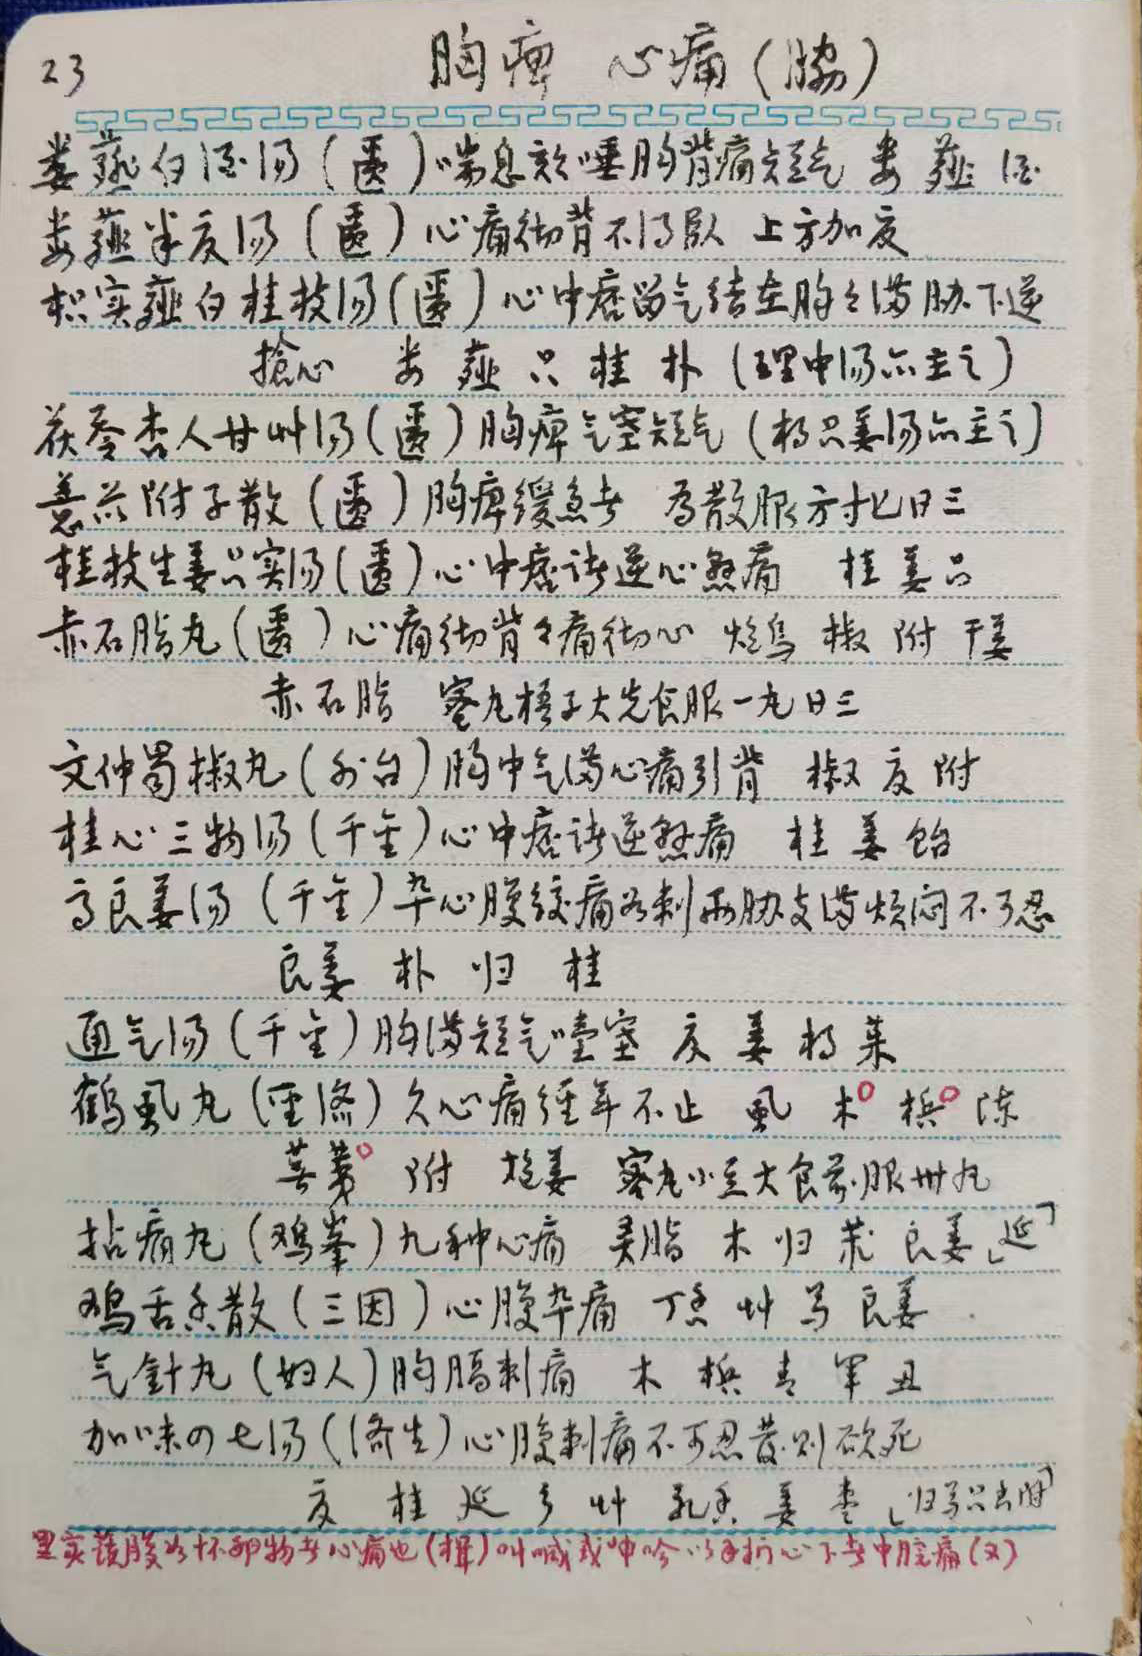 23 胸痺 心痛(脇)
娄薤白酒汤(匮)喘息欬唾胸背痛短气 娄 薤 酒
娄薤半夏汤(匮)心痛彻背不得臥 上方加夏
枳实薤白桂枝汤(匮)心中痞留气结在胸々满胁下逆
搶心 娄 薤 只 桂 朴(理中汤亦主之)
茯苓杏人甘艸汤(匮)胸痺气塞短气(桔只姜汤亦主之)
薏苡附子散(匮)胸痺缓急者 为散服方寸匕日三
桂枝生姜只实汤(匮)心中痞诸逆心悬痛 桂 姜 只
赤石脂丸(匮)心痛彻背々痛彻心 炮乌 椒 附 干姜
赤石脂 蜜丸梧子大先食服一丸日三
文仲蜀椒丸(外台)胸中气满心痛引背 椒 夏 附
桂心三物汤(千金)心中痞诸逆悬痛 桂 姜 饴
高良姜汤(千金)卒心腹绞痛如刺两胁支满烦闷不可忍
良姜 朴 归 桂
通气汤(千金)胸满短气噎塞 夏 姜 桔 茱
鹤虱丸(圣济)久心痛经年不止 虱 木 梹 陈
附 姜 蜜丸小豆大食前服卅丸
拈痛丸(鸡峯)九种心痛 灵脂 木 归 莪 良姜「延」
鸡舌香散(三因)心腹卒痛 丁香 艸 芍 良姜
气針丸(妇人)胸膈刺痛 木 梹 青 军 丑
加味四七汤(济生)心腹刺痛不可忍发则欲死
夏 桂 延 艸 乳香 姜 枣
心痛也 叫喊或呻吟以手扪心下者中脘痛(又)